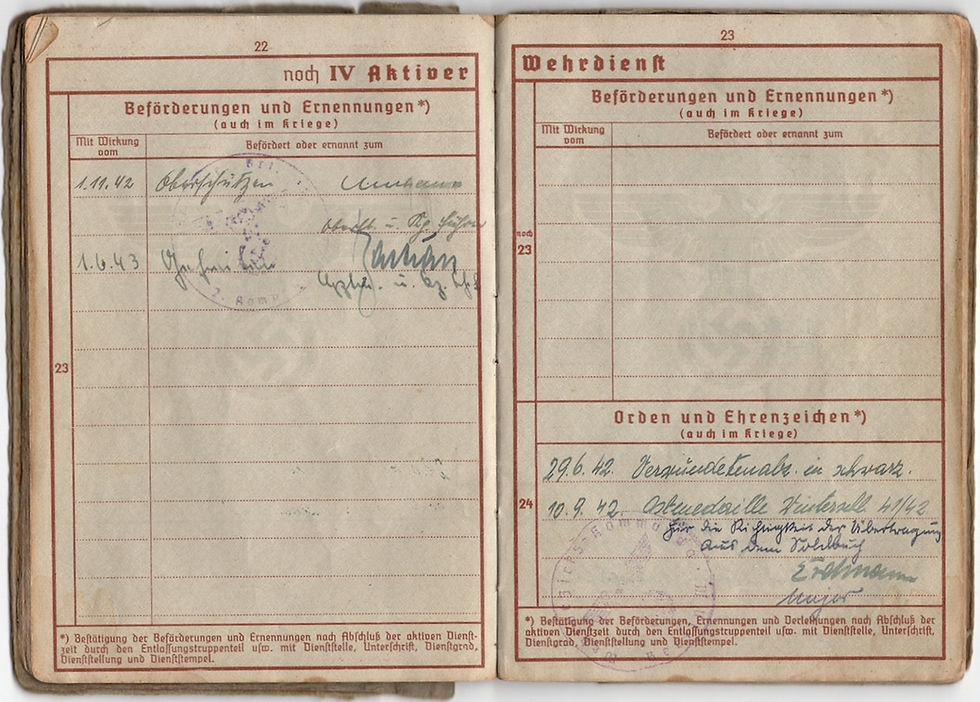 22
noch IV Aktiver
Beförderungen und Ernennungen*)
(auch im Kriege)
Mit Wirkung vom
Befördert oder ernannt zum
1.11.42 Oberschützen
Oberlt. u. Kp. Führer
1.6.43 Gefreiten
u.
23
*) Bestätigung der Beförderungen und Ernennungen nach Abschluß der aktiven Dienst-
zeit durch den Entlassungstruppenteil usw. mit Dienststelle, Unterschrift, Dienstgrad,
Dienststellung und Dienststempel.
23
Wehrdienst
Beförderungen und Ernennungen*)
(auch im Kriege)
Mit Wirkung vom
Befördert oder ernannt zum
noch
23
Orden und Ehrenzeichen*)
(auch im Kriege)
29.6.42. Verwundetenabz. in schwarz.
24
10.9.42. Ostmedaille Winterschl. 41/42
Für die Richtigkeit der Übertragung
aus dem Soldbuch
Erdmann
Major
*) Bestätigung der Beförderungen, Ernennungen und Verleihungen nach Abschluß der
aktiven Dienstzeit durch den Entlassungstruppenteil usw. mit Dienststelle, Unterschrift,
Dienstgrad, Dienststellung und Dienststempel.